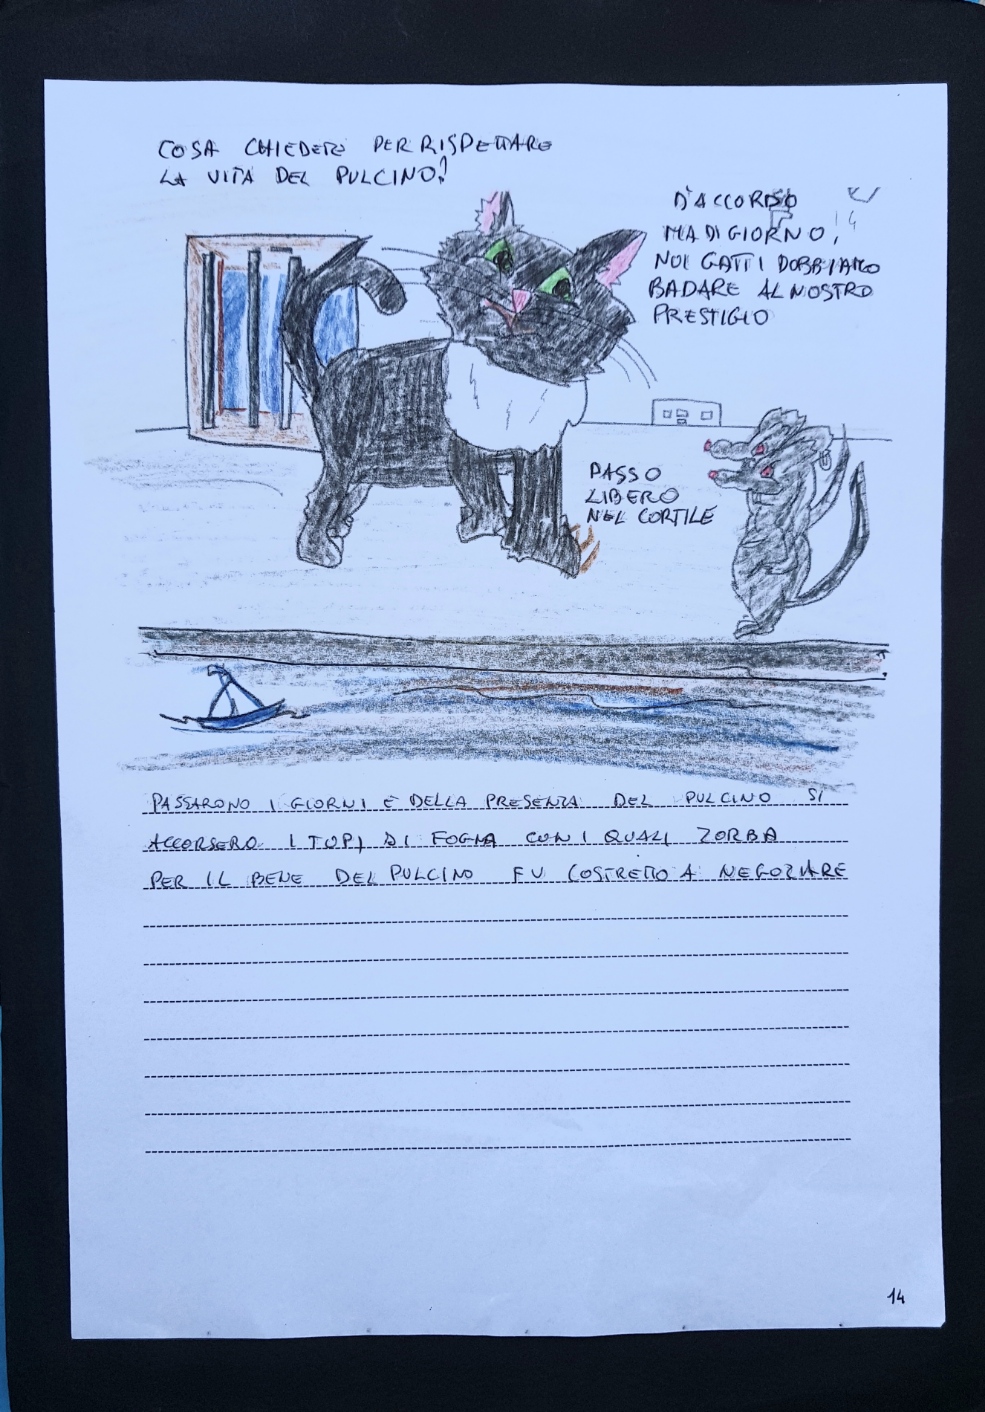 COSA CHIEDETE PER RISPETTARE
LA VITA DEL PULCINO?
D'ACCORDO
MA DI GIORNO,
NOI GATTI DOBBIAMO
BADARE AL NOSTRO
PRESTIGIO
PASSO
LIBERO
NEL CORTILE
PASSARONO I GIORNI E DELLA PRESENZA DEL PULCINO SI
ACCORSERO I TOPI DI FOGNA CON I QUALI ZORBA
PER IL BENE DEL PULCINO FU COSTRETTO A NEGOZIARE
14